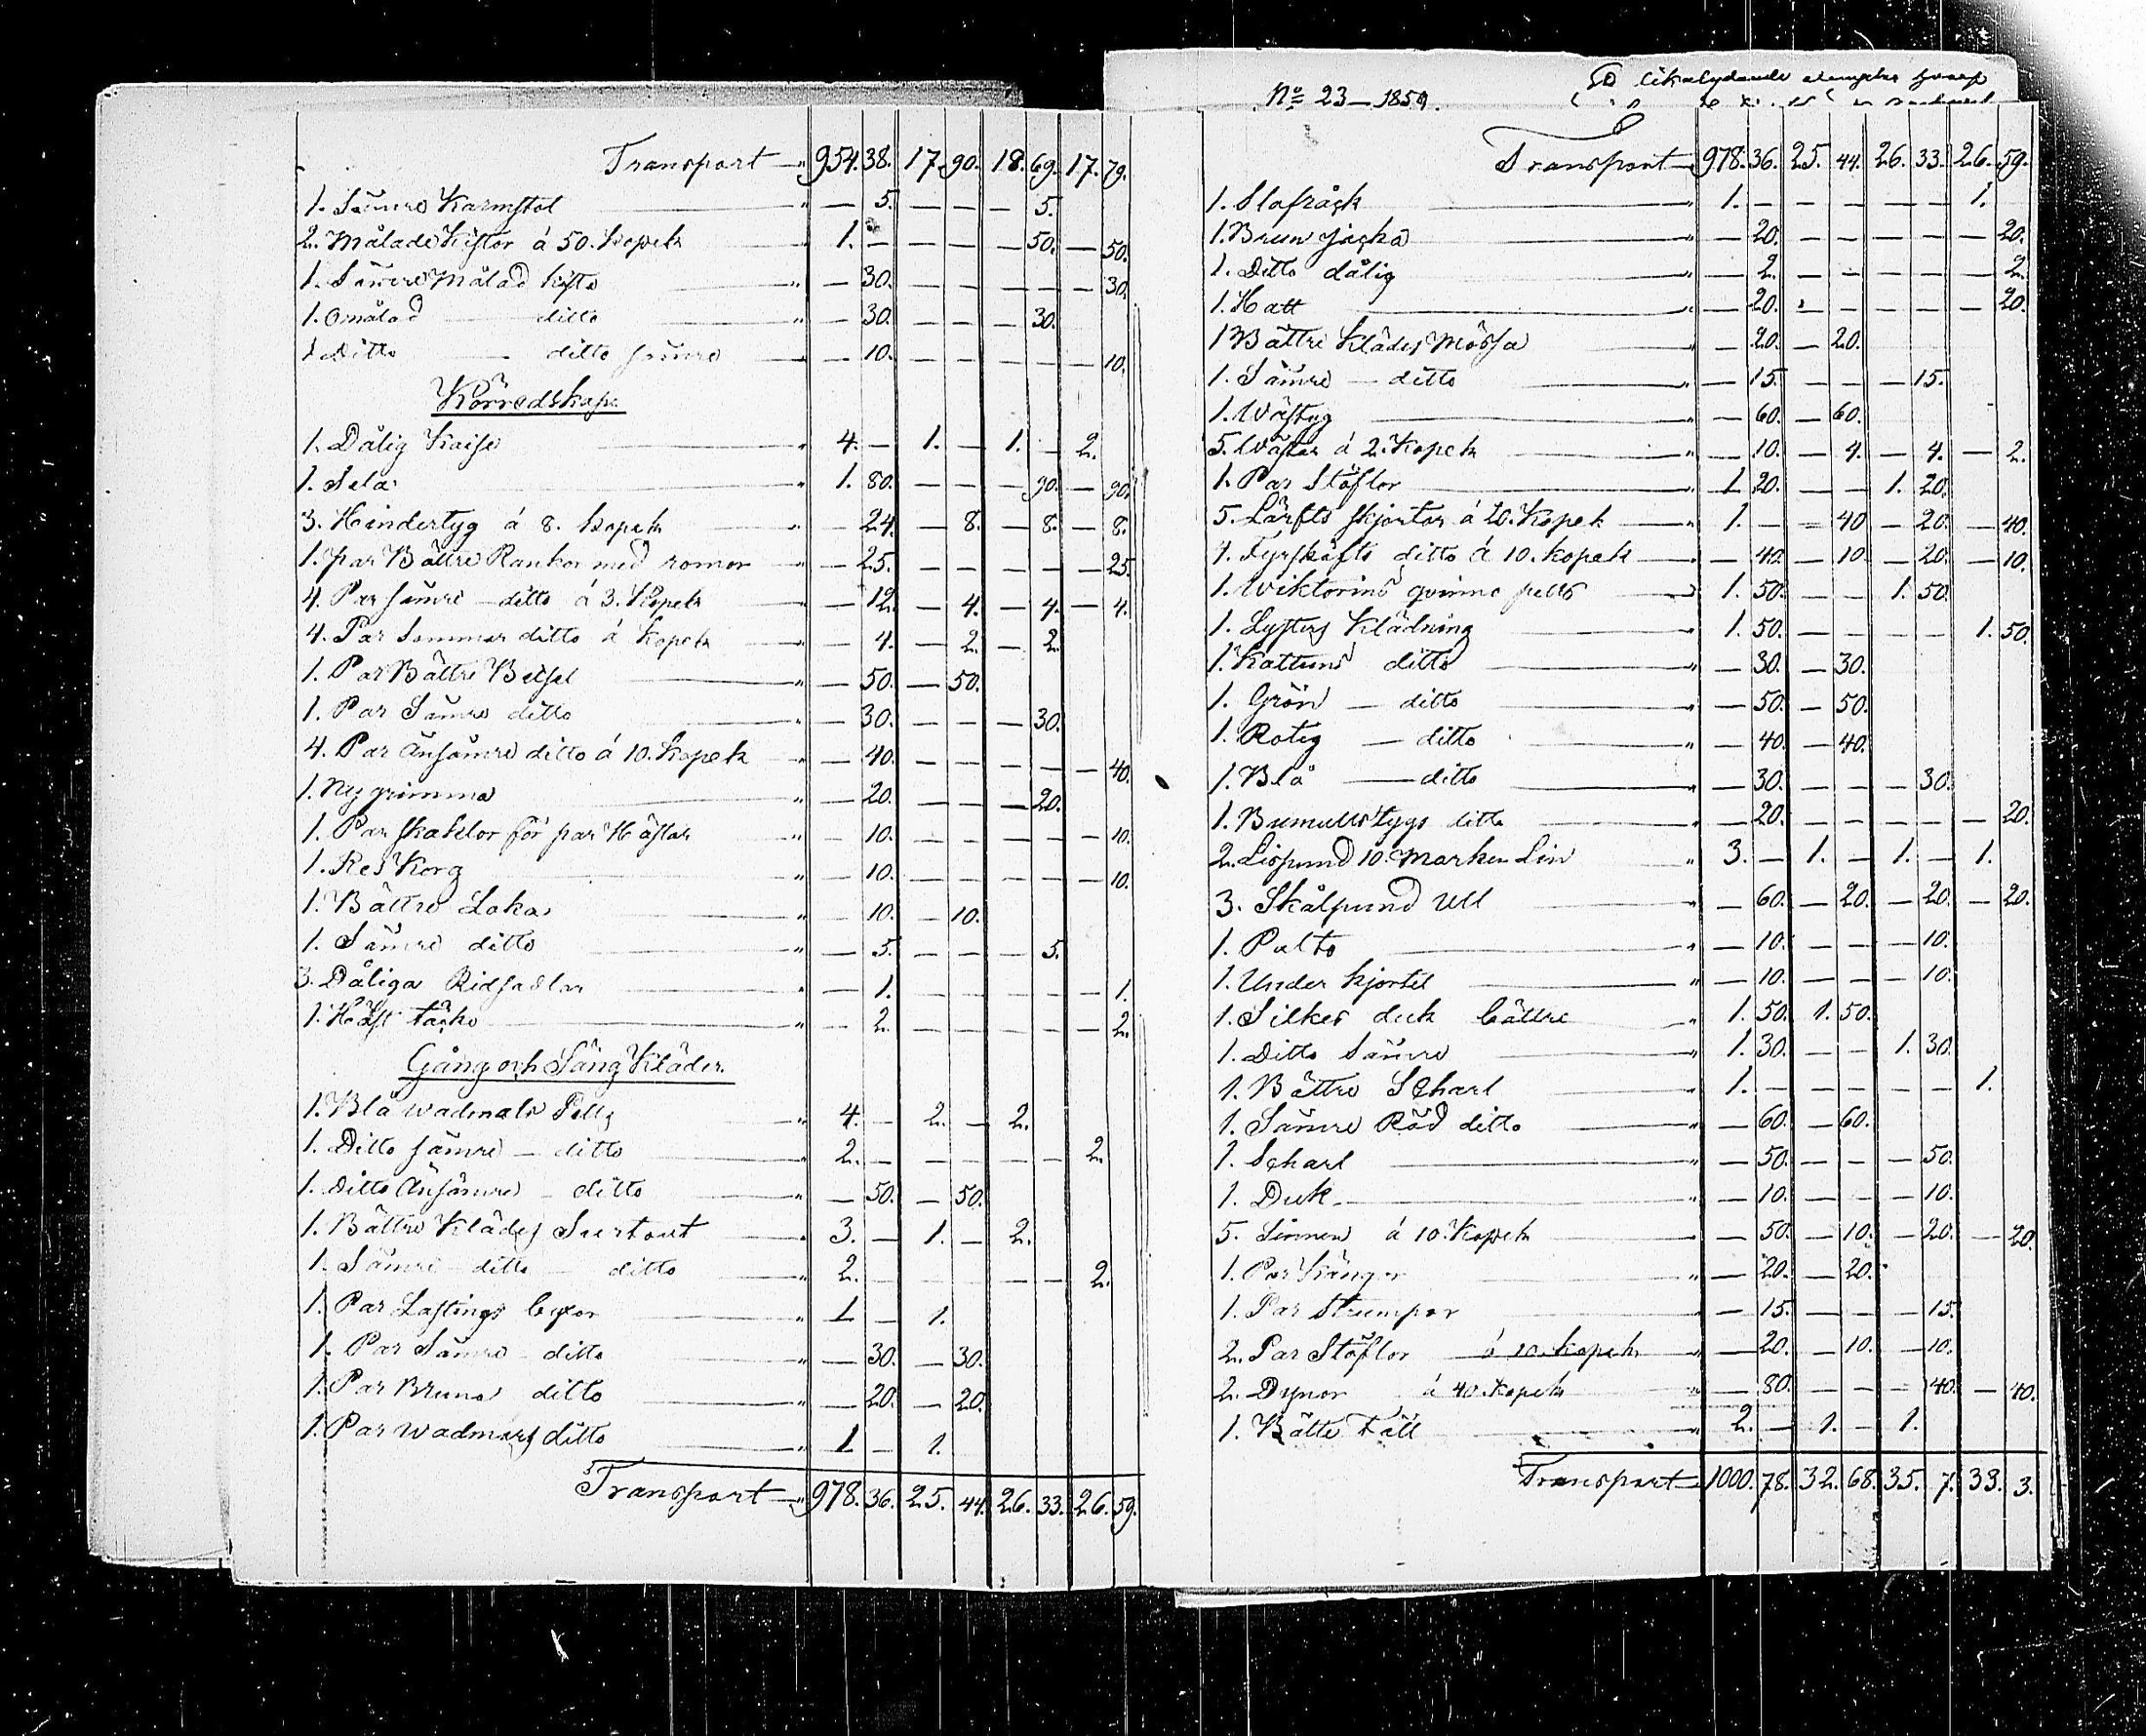 Transport — 954. 38. 17. 90. 18. 69. 17. 79.
1. Sämre Karmstol — 5. — — — 5.
2. Målade Kistor á 50. kopek 1. — — — — 50. — 50.
1. Sämre Målad kista — 30. — — — — — 30.
1. Omålad ditto — 30. — — — 30.
1 Ditto ditto sämre — 10. — — — — — 10.
Körredskap.
1. Dålig Kaise 4. — 1. — 1. — 2.
1. Sela 1. 80. — — — 90. — 90.
3. Hindertyg á 8. kopek — 24. — 8. — 8. — 8.
1. par Bättre Rankor med romor — 25. — — — — — 25.
4. Par sämre ditto á 3. Kopek — 12. — 4. — 4. — 4.
4. Par Sommar ditto á Kopek — 4. — 2. — 2.
1. Par Bättre Betsel — 50. — 50.
1. Par Sämre ditto — 30. — — — 30.
4. Par Änsämre ditto á 10. Kopek — 40. — — — — — 40.
1. Ny grimma — 20. — — — 20.
1. Par skaklor för par Hästar — 10. — — — — — 10.
1. Res Korg — 10. — — — — — 10.
1. Bättre Loka — 10. — 10.
1. Sämre ditto — 5. — — — 5.
3. Dåliga Ridsadlar — 1. — — — — — 1.
1. Häst täcke — 2. — — — — — 2.
Gång och Säng Kläder.
1. Blå wadmals Pells 4. — 2. — 2.
1. Ditto sämre — ditto 2. — — — — — 2.
1. Ditto Änsämre — ditto — 50. — 50.
1. Bättre Klädes Surtout 3. — 1. — 2.
1. Sämre ditto ditto 2. — — — — — 2.
1. Par Lastings byxor 1 — 1.
1. Par Sämre ditto — 30. — 30.
1. Par Bruna ditto — 20. — 20.
1. Par wadmars ditto 1 — 1.
Transport — 978. 36. 25. 44. 26. 33. 26. 59.
No 23 — 1859.
likalydande
Transport — 978. 36. 25. 44. 26. 33. 26. 59.
1. Slafråck 1. — — — — — 1.
1. Brun jacka — 20. — — — — — 20.
1. Ditto dålig — 2. — — — — — 2.
1. Hatt — 20. — — — — — 20.
1 Bättre Klädes Mössa — 20. — 20.
1. Sämre — ditto — 15. — — — 15.
1. Wästyg — 60. — 60.
5. Wästar á 2. Kopek — 10. — 4. — 4. — 2.
1. Par Stöflor 1 20. — — 1. 20.
5. Lärfts skjortor á 20. Kopek 1. — — 40 — 20. — 40.
4. Fyrskafts ditto á 10. kopek — 40. — 10. — 20. — 10.
1. Wiktorins qvinno pells 1. 50. — — 1. 50.
1. Lysters Klädning 1. 50. — — — — 1. 50.
1. Kattuns ditto — 30. — 30.
1. Grön — ditto — 50. — 50.
1. Rotig — ditto — 40. — 40.
1. Blå — ditto — 30. — — — 30.
1. Bumullstygs ditto — 20. — — — — — 20.
2. Lispund 10. Marker Lin 3. — 1. — 1. — 1.
3. Skålpund Ull — 60. — 20. — 20. — 20.
1. Palto — 10. — — — 10.
1. Under kjortel — 10. — — — 10.
1. Silkes duk bättre 1. 50. 1. 50.
1. Ditto Sämre 1. 30. — — 1. 30.
1. Bättre Scharl 1. — — — — — 1.
1. Sämre Röd ditto — 60. — 60.
1. Scharl — 50. — — — 50.
1. Duk — 10. — — — 10.
5. Linnen á 10. Kopek — 50. — 10. — 20. — 20.
1. Par Kängor — 20. — 20.
1. Par Strumpor — 15. — — — 15.
2. Par Stöflor á 10. kopek — 20. — 10. — 10.
2. Dynor á 40. kopek — 80. — — — 40. — 40.
1. Bätte Fäll 2. — 1. — 1.
Transport — 1000. 78. 32. 68. 35. 7. 33. 3.